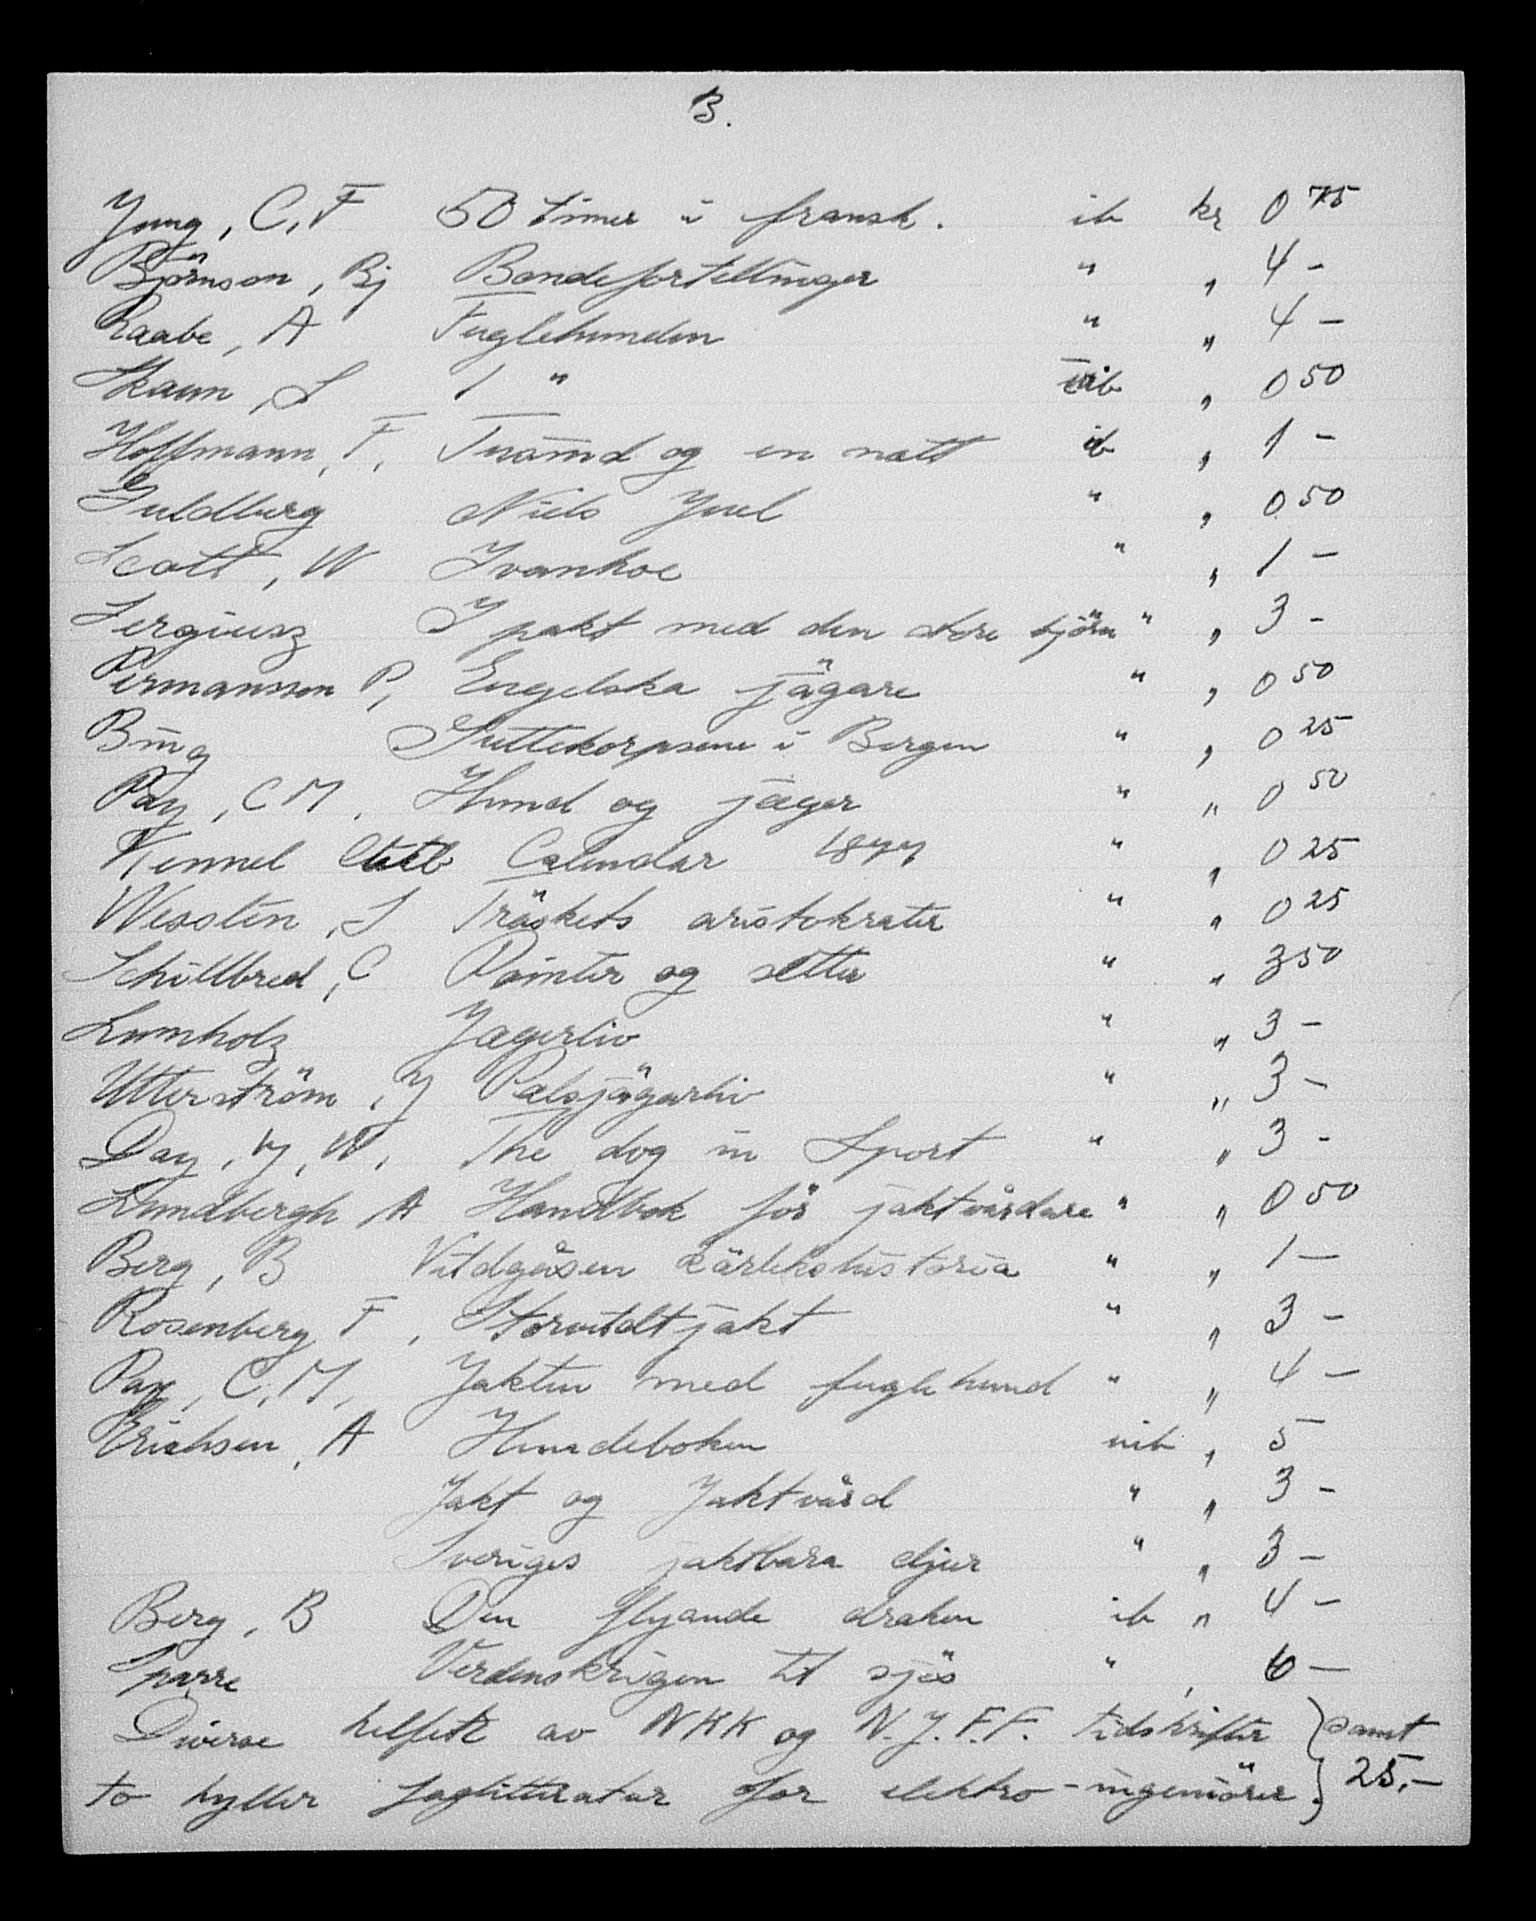 3.
Jung, C. F 50 timer i fransk. ib kr 0 75
Björnson, Bj Bondefortellinger " " 4 -
Raabe, A Fuglehunden " " 4 -
Skaun, S / " uib " 0 50
Hoffmann, F. Tusind og en natt ib " 1 -
Guldberg Niels Juel " " 0 50
Scott, W Ivanhoe " " 1 -
Sergiusz I pakt med den store björn " " 3 -
Permansson P, Engelska jägare " " 0 50
Bing Buekorpsene i Bergen " " 0 25
Pay, C M. Hund og jæger " " 0 50
Kennel Club Calendar 1877 " " 0 25
Wesslén, S Träskets aristokrater " " 0 25
Schiillbred, C Pointer og setter " " 3 50
Lumholz Jægerliv " " 3 -
Utterström, J Pälsjägarliv " " 3 -
Day, J. W. The dog in Sport " " 3 -
Lundbergh, A Handbok för jaktvårdare " " 0 50
Berg, B Vildgåsen kärlekshistoria " " 1 -
Rosenberg F, Storvildtjakt " " 3 -
Pay, C. M. Jakten med fuglehund " " 4 -
Erichsen, A Hundeboken uib " 5
Jakt og Jaktvård " " 3 -
Sveriges jaktbara djur " " 3 -
Berg, B Den flygande draken ib " 4 -
Sparre Verdenskrigen til sjös " , 6 -
Diverse helfete av NKK og N.J.F.F. tidskrifter } samt
to hyller faglitteratur for elektro-ingeniörer. } 25.-